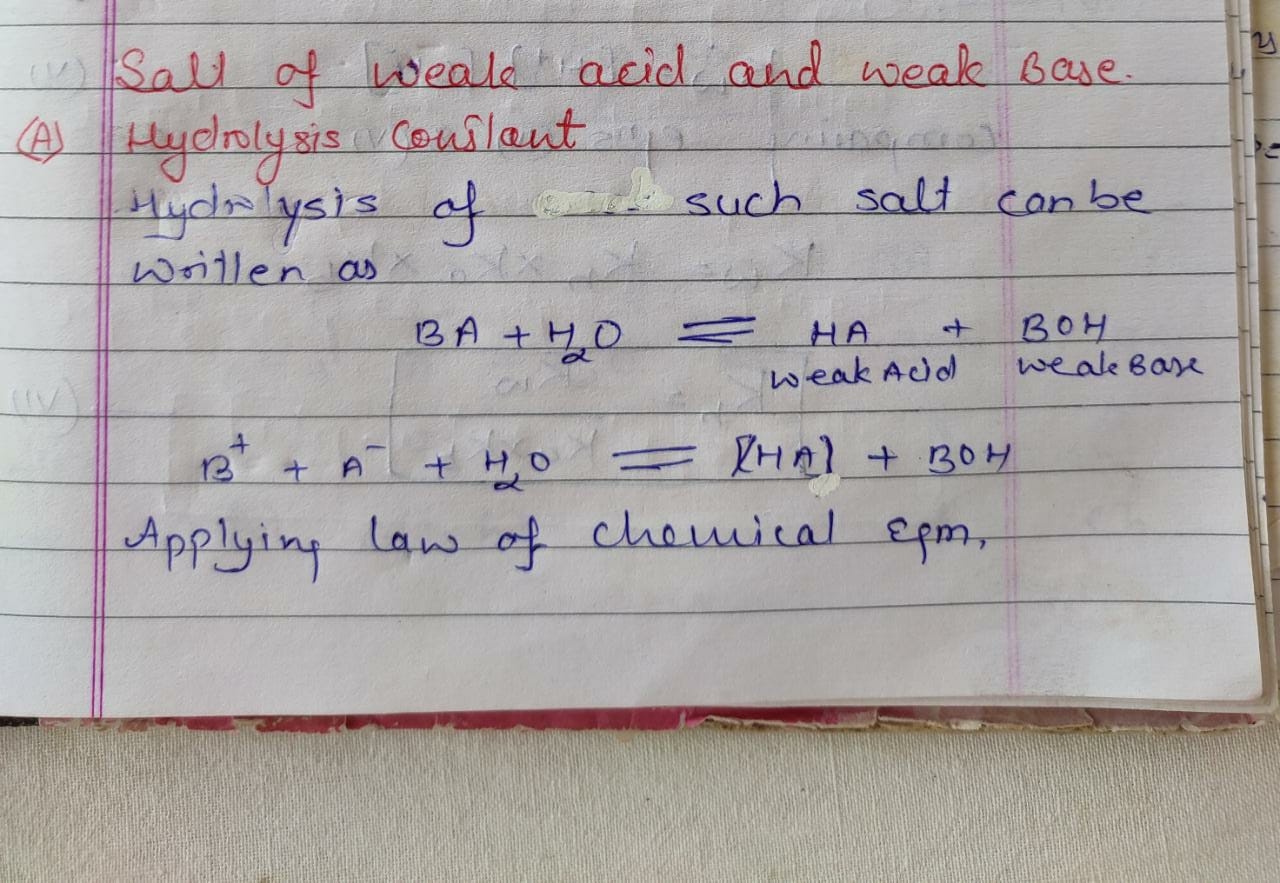 Salt of weak acid and weak Base.
(A) Hydrolysis Constant
Hydrolysis of such salt can be
written as
BA + H₂O ⇌ HA + BOH
weak Acid weak Base
B⁺ + A⁻ + H₂O ⇌ [HA] + BOH
Applying law of chemical Eqm,